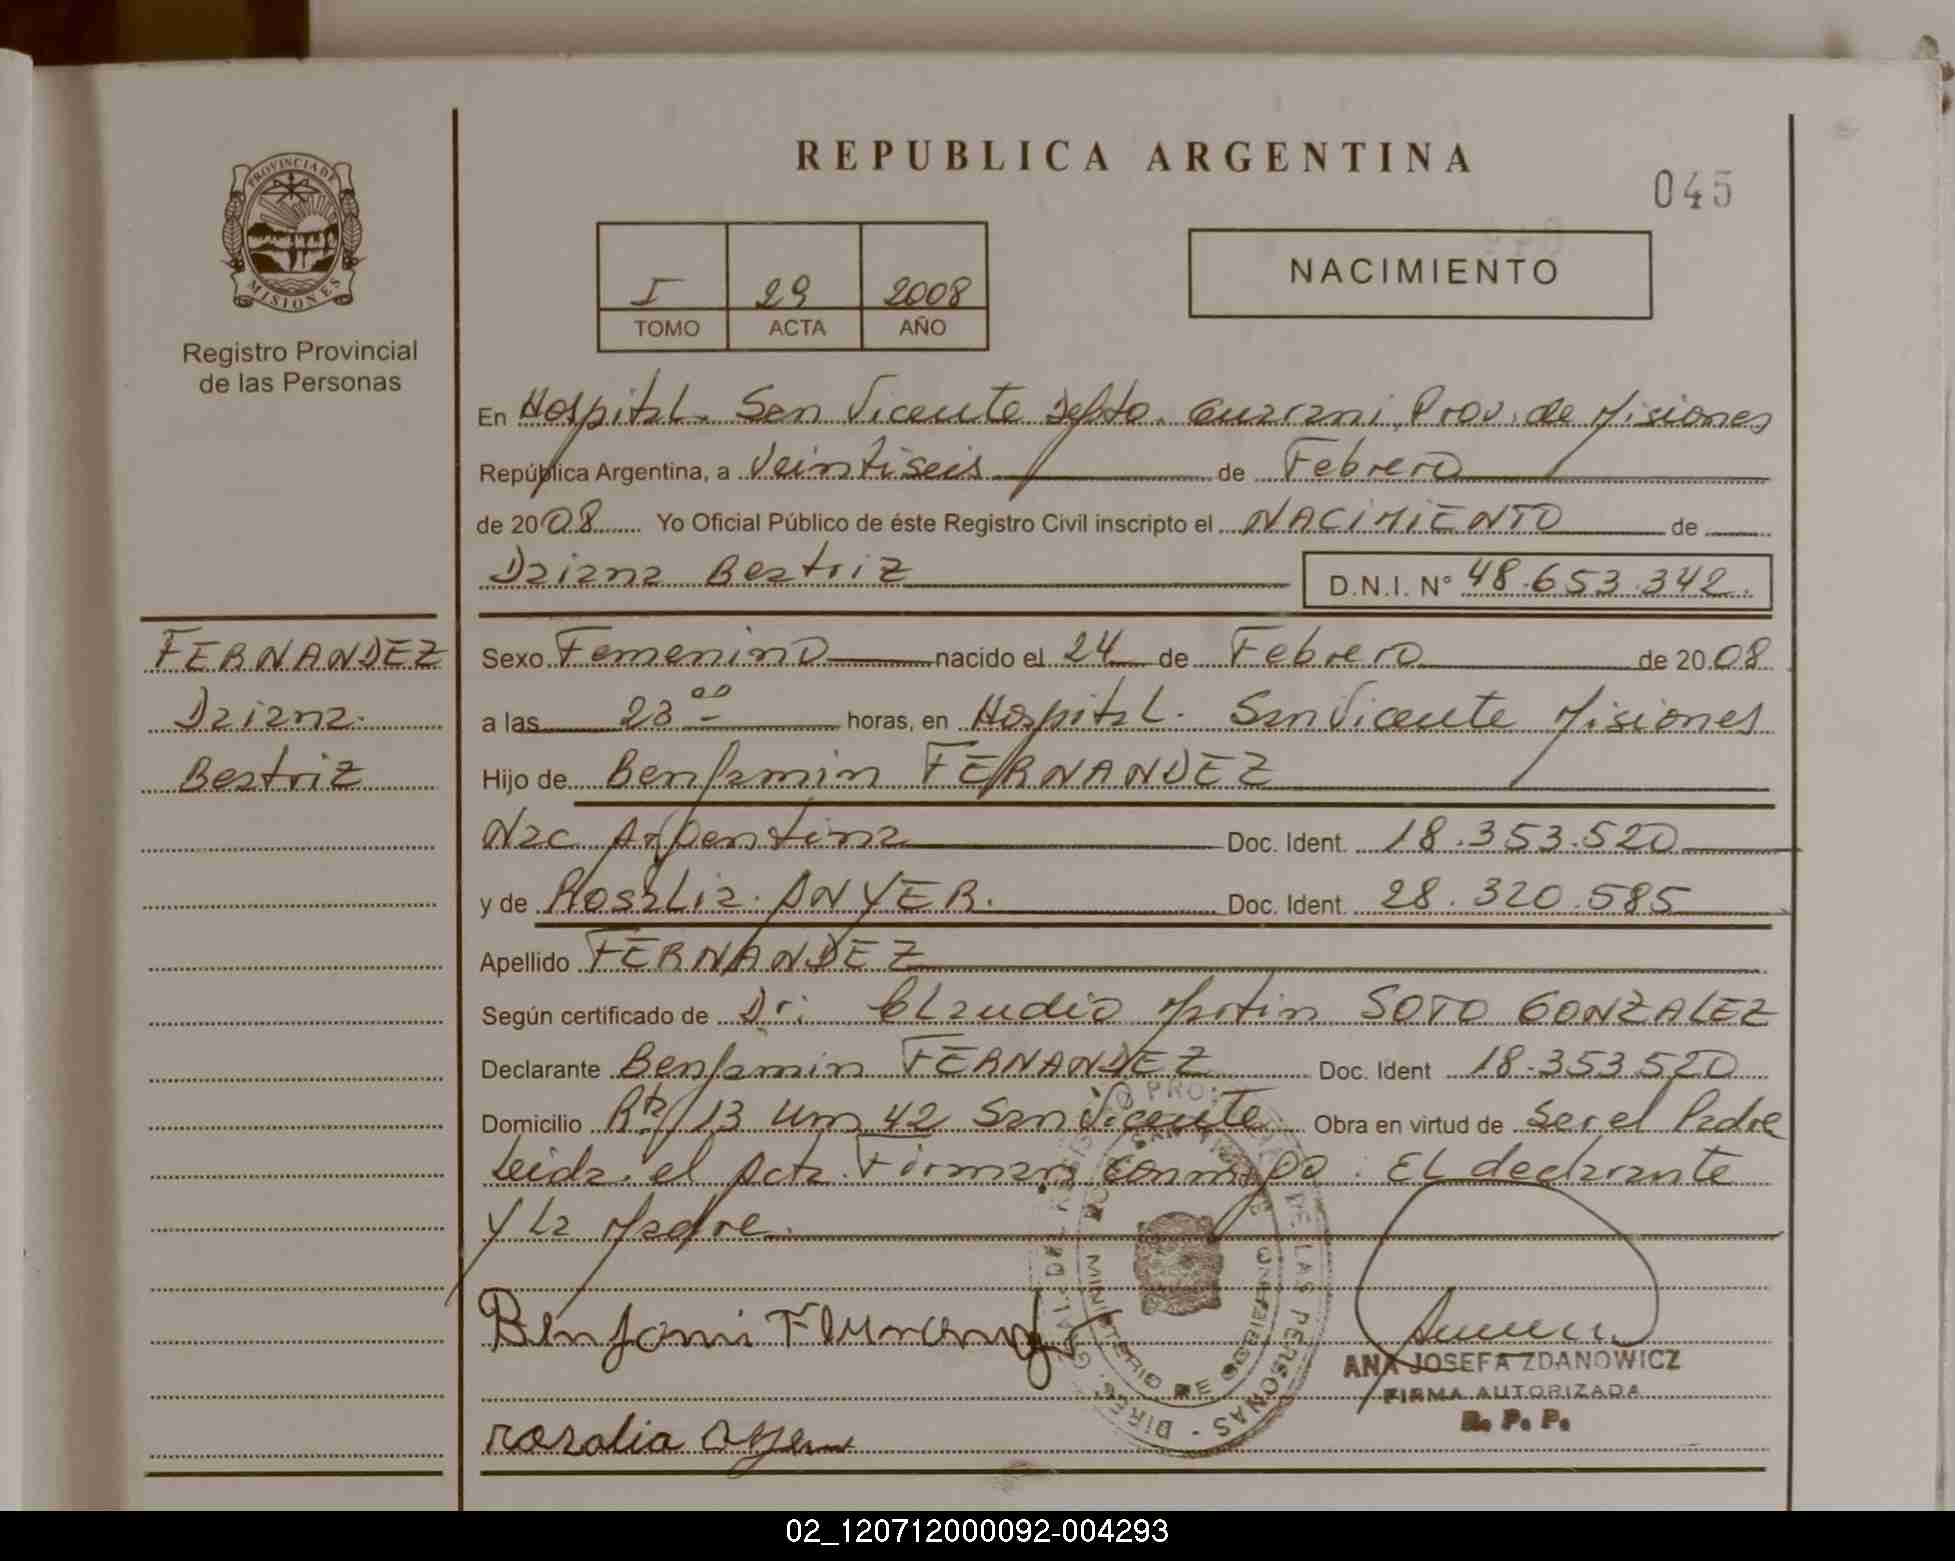 REPUBLICA ARGENTINA
045
PROVINCIA DE
MISIONES
Registro Provincial
de las Personas
I 29 2008
TOMO ACTA AÑO
NACIMIENTO
En Hospital. San Vicente Depto. Guarani, Prov. de Misiones
República Argentina, a Veintiseis de Febrero
de 2008 Yo Oficial Público de éste Registro Civil inscripto el NACIMIENTO de
Daiana Beatriz D.N.I. N° 48.653.342.
FERNANDEZ
Daiana.
Beatriz
Sexo Femenino nacido el 24 de Febrero de 2008
a las 23 00 horas, en Hospital. San Vicente Misiones
Hijo de Benjamin FERNANDEZ
Nac Argentina Doc. Ident. 18.353.520
y de Rosalia. ANYER. Doc. Ident. 28.320.585
Apellido FERNANDEZ
Según certificado de Dr. Claudio Martin SOTO GONZALEZ
Declarante Benjamin FERNANDEZ Doc. Ident 18.353.520
Domicilio Rta 13 Um 42 San Vicente Obra en virtud de Ser el Padre
Leida. el Acta. Firman conmigo. El declarante
y La Madre.
DE LAS PERSONAS
MINISTERIO DE GOBIERNO
ANA JOSEFA ZDANOWICZ
FIRMA AUTORIZADA
R. P. P.
rosalia
02_120712000092-004293